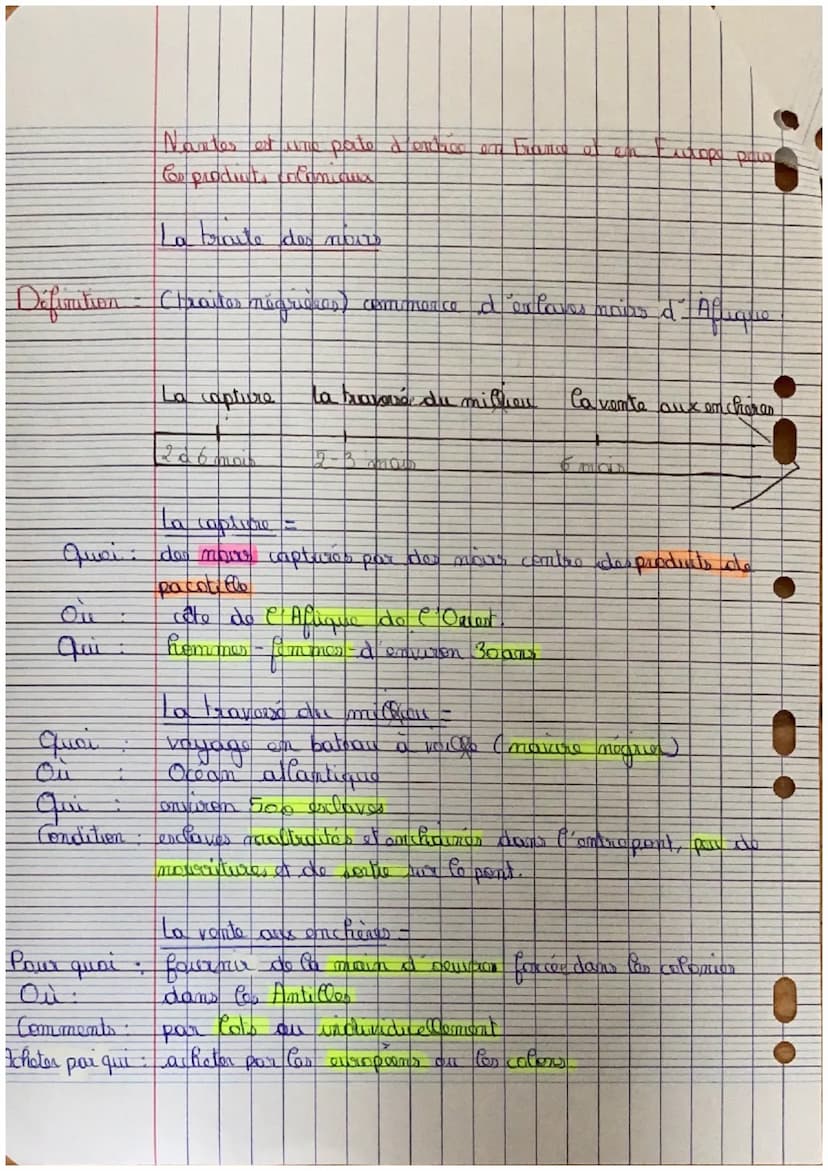 Nantes est une porte d'entrée en France et en Europe pour
les produits coloniaux
La traite des noirs
Définition = (traites négrières) commerce d'esclaves noirs d'Afrique
La capture la traversé du millieu La vente aux enchères
2 à 6 mois 2-3 mois 6 mois
La capture =
Quoi : des noirs capturés par des noirs contre des produits de
pacotille
Où : côte de l'Afrique de l'Ouest.
Qui : hommes - femmes - d'environ 30 ans
La traversé du millieu =
Quoi : voyage en bateau à voile (navire négrier)
Où : Océan atlantique
Qui : environ 500 esclaves
Condition : esclaves maltraités et enchainés dans l'entrepont, peu de
nourritures et de sortie sur le pont.
La vente aux enchères =
Pour quoi : fournir de la main d'oeuvre forcée dans les colonies
Où : dans les Antilles
Comments : par lots ou individuellement
Acheter par qui : acheter par les européens ou les colons